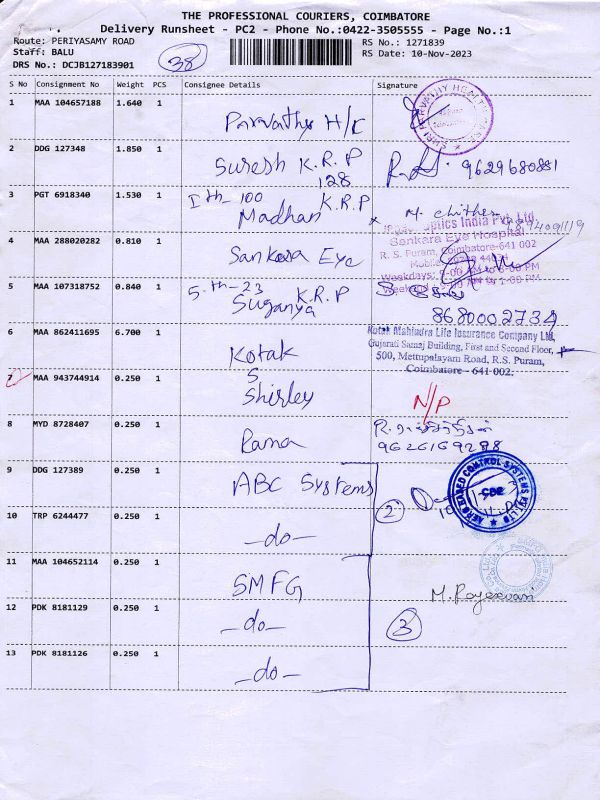 THE PROFESSIONAL COURIERS, COIMBATORE
Delivery Runsheet - PC2 - Phone No.:0422-3505555 - Page No.:1
Route: PERIYASAMY ROAD
RS No.: 1271839
Staff: BALU
RS Date: 10-Nov-2023
DRS No.: DCJB127183901
38
S No Consignment No Weight PCS Consignee Details Signature
1 MAA 104657188 1.640 1 Parvathy H/C
2 DDG 127348 1.850 1 Suresh K.R.P 9629680881
128
3 PGT 6918340 1.530 1 Ith-100 K.R.P
Madhan M. Chither
Optics India Pvt. Ltd.
Sankara Eye Hospital
4 MAA 288020282 0.810 1 Sankara Eye R. S. Puram, Coimbatore-641 002
5 MAA 107318752 0.840 1 5-th-23 K.R.P
Suganya 8680002734
6 MAA 862411695 6.700 1 Kotak
Kotak Mahindra Life Insurance Company Ltd,
Gujarati Samaj Building, First and Second Floor,
500, Mettupalayam Road, R.S. Puram,
Coimbatore - 641 002.
7 MAA 943744914 0.250 1 S
Shirley N/P
8 MYD 8728407 0.250 1 Rama
9626169298
9 DDG 127389 0.250 1 ABC Systems
10 TRP 6244477 0.250 1 -do- 2
11 MAA 104652114 0.250 1 SMFG
12 PDK 8181129 0.250 1 -do- 3
13 PDK 8181126 0.250 1 -do-